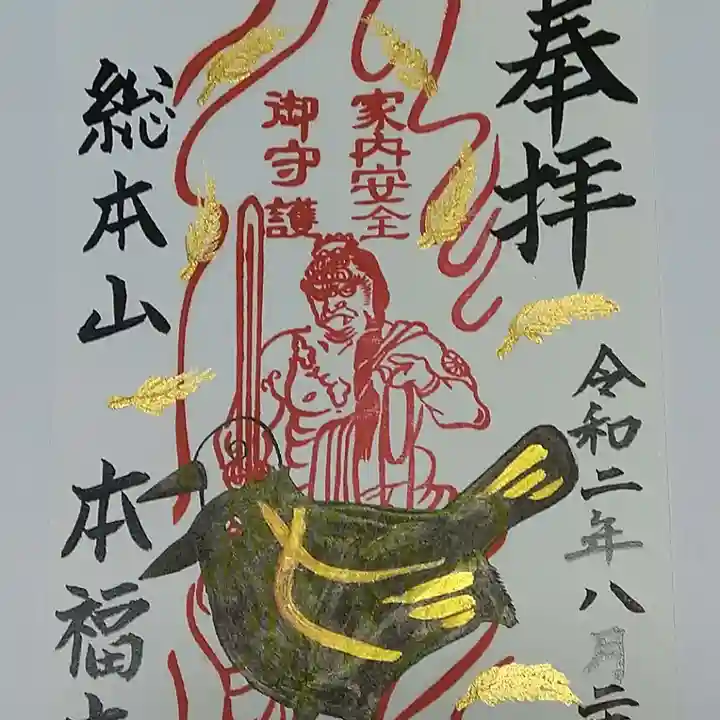 奉拝
令和二年八月二
家内安全
御守護
総本山
本福